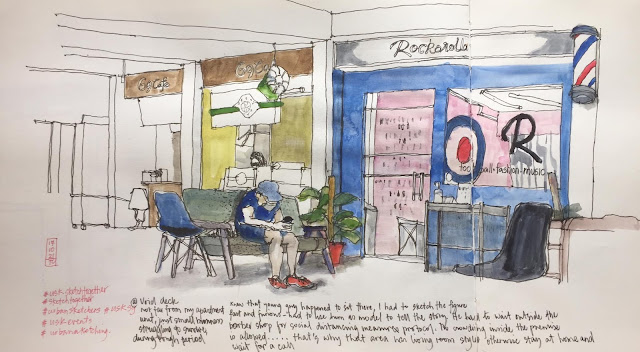 Rockarolla
GG Cafe
GG Cafe
R
football•fashion•music
#usksketchtogether
#sketchtogether
#urbansketchers #usksg
#usk-events
#urbansketching
@ Viid deck
not far from my apartment
unit, just small business
struggling to survive
during tough period
Know that young guy happened to sit there, I had to sketch the figure
fast and furious – had to use him as model to tell the story. He had to wait outside the
barber shop for social distancing measures protocol. No crowding inside the premise
is allowed..... that's why that area has living room style otherwise stay at home and
wait for a call